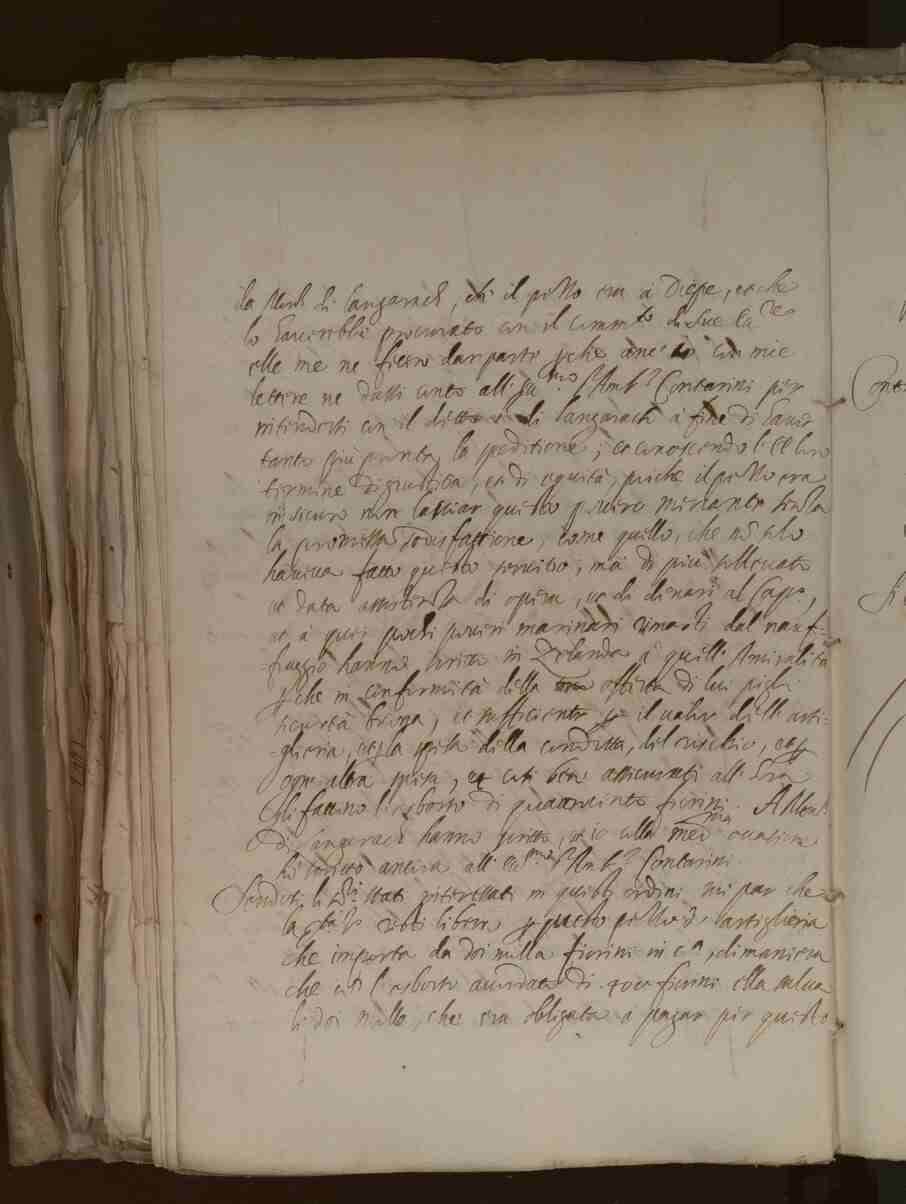 da Mons.r di Langarach, che il pezzo era à Diepe, et che
lo haverebbe procurato con il comm.to di sue ca.
elle me ne fecero dar parte perche anc'io con mie
lettere ne dassi conto all'Ecc.mo S.r Amb.r Contarini per
intendersi con il detto di Langarach à fine di haver
tanto più pronta la speditione, et conoscendo l'EE. loro
termine di giustitia, et di equità, poiche il pezzo era
in sicuro non lasciar questo povero mercante senza
la promessa sodisfattione, come quello, che nõ solo
haveva fatto questo servitio, ma di più sollevato
et data assistenza di opera, et di denari al Cap.o,
et à quei pochi poveri marinari rimasti dal nauf-
fraggio hanno scritto in Zelanda à quell'Amiralità
perche in conformità della offerta di lui pigli
sicurtà buona, et sufficiente per il valor dell'arti-
glieria, et la spesa della condotta, del rischio, et per
ogni altra spesa, et così ben assicurati all'hora
gli faccino l'esborso di quattrocento fiorini. A Mons.r
di Langarach hanno scritto, et io colla med.ma occasione
hò scritto ancora all'Ecc.mo S.r Amb.r Contarini.
Sendosi li S.ri Stati interessati in questi ordini mi par che
la resti libera per questo pezzo d'artiglieria
che importa da doi mille fiorini in c.a, di maniera
che così l'esborso accordato di 400 fiorini ella salva
li doi mille, che era obligata à pagar per questo